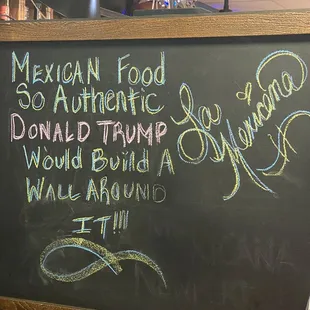 Mexican Food
So Authentic
Donald Trump
Would Build A
Wall Around
It!!!
La
Mexicana